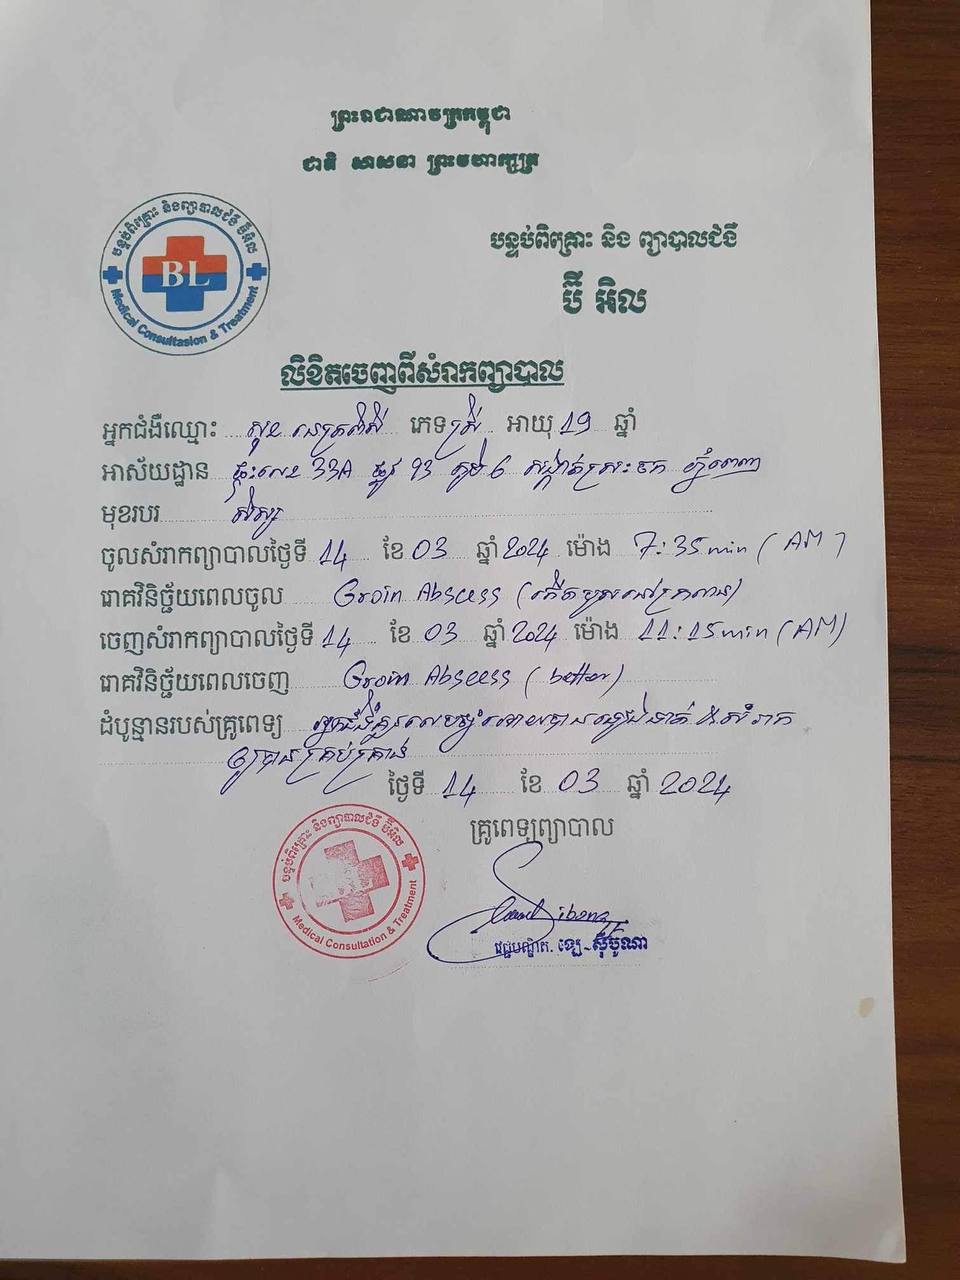 ព្រះរាជាណាចក្រកម្ពុជា
ជាតិ សាសនា ព្រះមហាក្សត្រ
បន្ទប់ពិគ្រោះ និងព្យាបាលជំងឺ ប៊ីអិល
BL
Medical Consultasion & Treatment
បន្ទប់ពិគ្រោះ និង ព្យាបាលជំងឺ
ប៊ី អិល
លិខិតចេញពីសំរាកព្យាបាល
អ្នកជំងឺឈ្មោះ ភេទ ស្រី អាយុ 19 ឆ្នាំ
អាស័យដ្ឋាន ផ្ទះលេខ 33A ផ្លូវ 93 ភូមិ 6 សង្កាត់ស្រះចក ភ្នំពេញ
មុខរបរ សិស្ស
ចូលសំរាកព្យាបាលថ្ងៃទី 14 ខែ 03 ឆ្នាំ 2024 ម៉ោង 7:35min (AM)
រោគវិនិច្ឆ័យពេលចូល Groin Abscess (កើតបូសនៅក្រលៀន)
ចេញសំរាកព្យាបាលថ្ងៃទី 14 ខែ 03 ឆ្នាំ 2024 ម៉ោង 11:15min (AM)
រោគវិនិច្ឆ័យពេលចេញ Groin Abscess (better)
ដំបូន្មានរបស់គ្រូពេទ្យ អ្នកជំងឺត្រូវលេបថ្នាំអោយបានទៀងទាត់ & សំរាក
ឲ្យបានគ្រប់គ្រាន់
ថ្ងៃទី 14 ខែ 03 ឆ្នាំ 2024
គ្រូពេទ្យព្យាបាល
បន្ទប់ពិគ្រោះ និងព្យាបាលជំងឺ ប៊ីអិល
Medical Consultation & Treatment
វេជ្ជបណ្ឌិត. ឡេ-ស៊ីបូណា